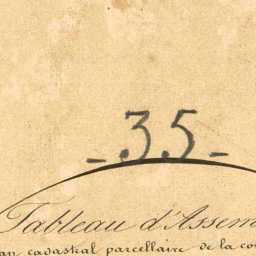 - .3.5 -
Tableau d'Assem
an cadastral parcellaire de la co